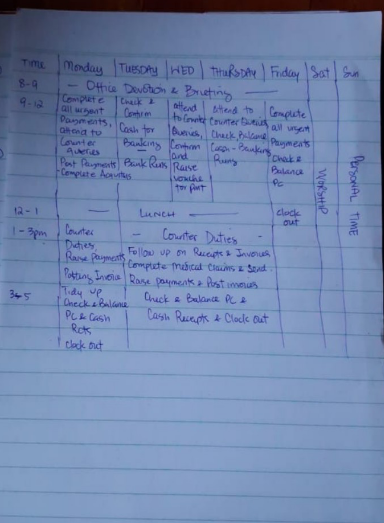 Time Monday TUESDAY WED THURSDAY Friday Sat Sun
8-9 - Office Devotion & Briefing -
9-12 Complete all urgent Payments, attend to Counter queries
Post Payments
Complete Activities
Check & Confirm Cash for Banking
Bank Runs
attend to Counter Queries, Confirm and Raise voucher for Part
Attend to Counter Queries Check Balance Cash - Banking Runs
Complete all urgent Payments Check & Balance PC
WORSHIP
PERSONAL TIME
12-1 - LUNCH - clock out
1-3pm Counter Duties - Counter Duties -
Raise Payments Follow up on Receipts & Invoices
Posting Invoice Complete Medical Claims & Send
Raise payments & Post invoices
3-5 Tidy up Check & Balance PC &
Check & Balance Cash Receipts & Clock out
PC & Cash
Rcts
Clock out